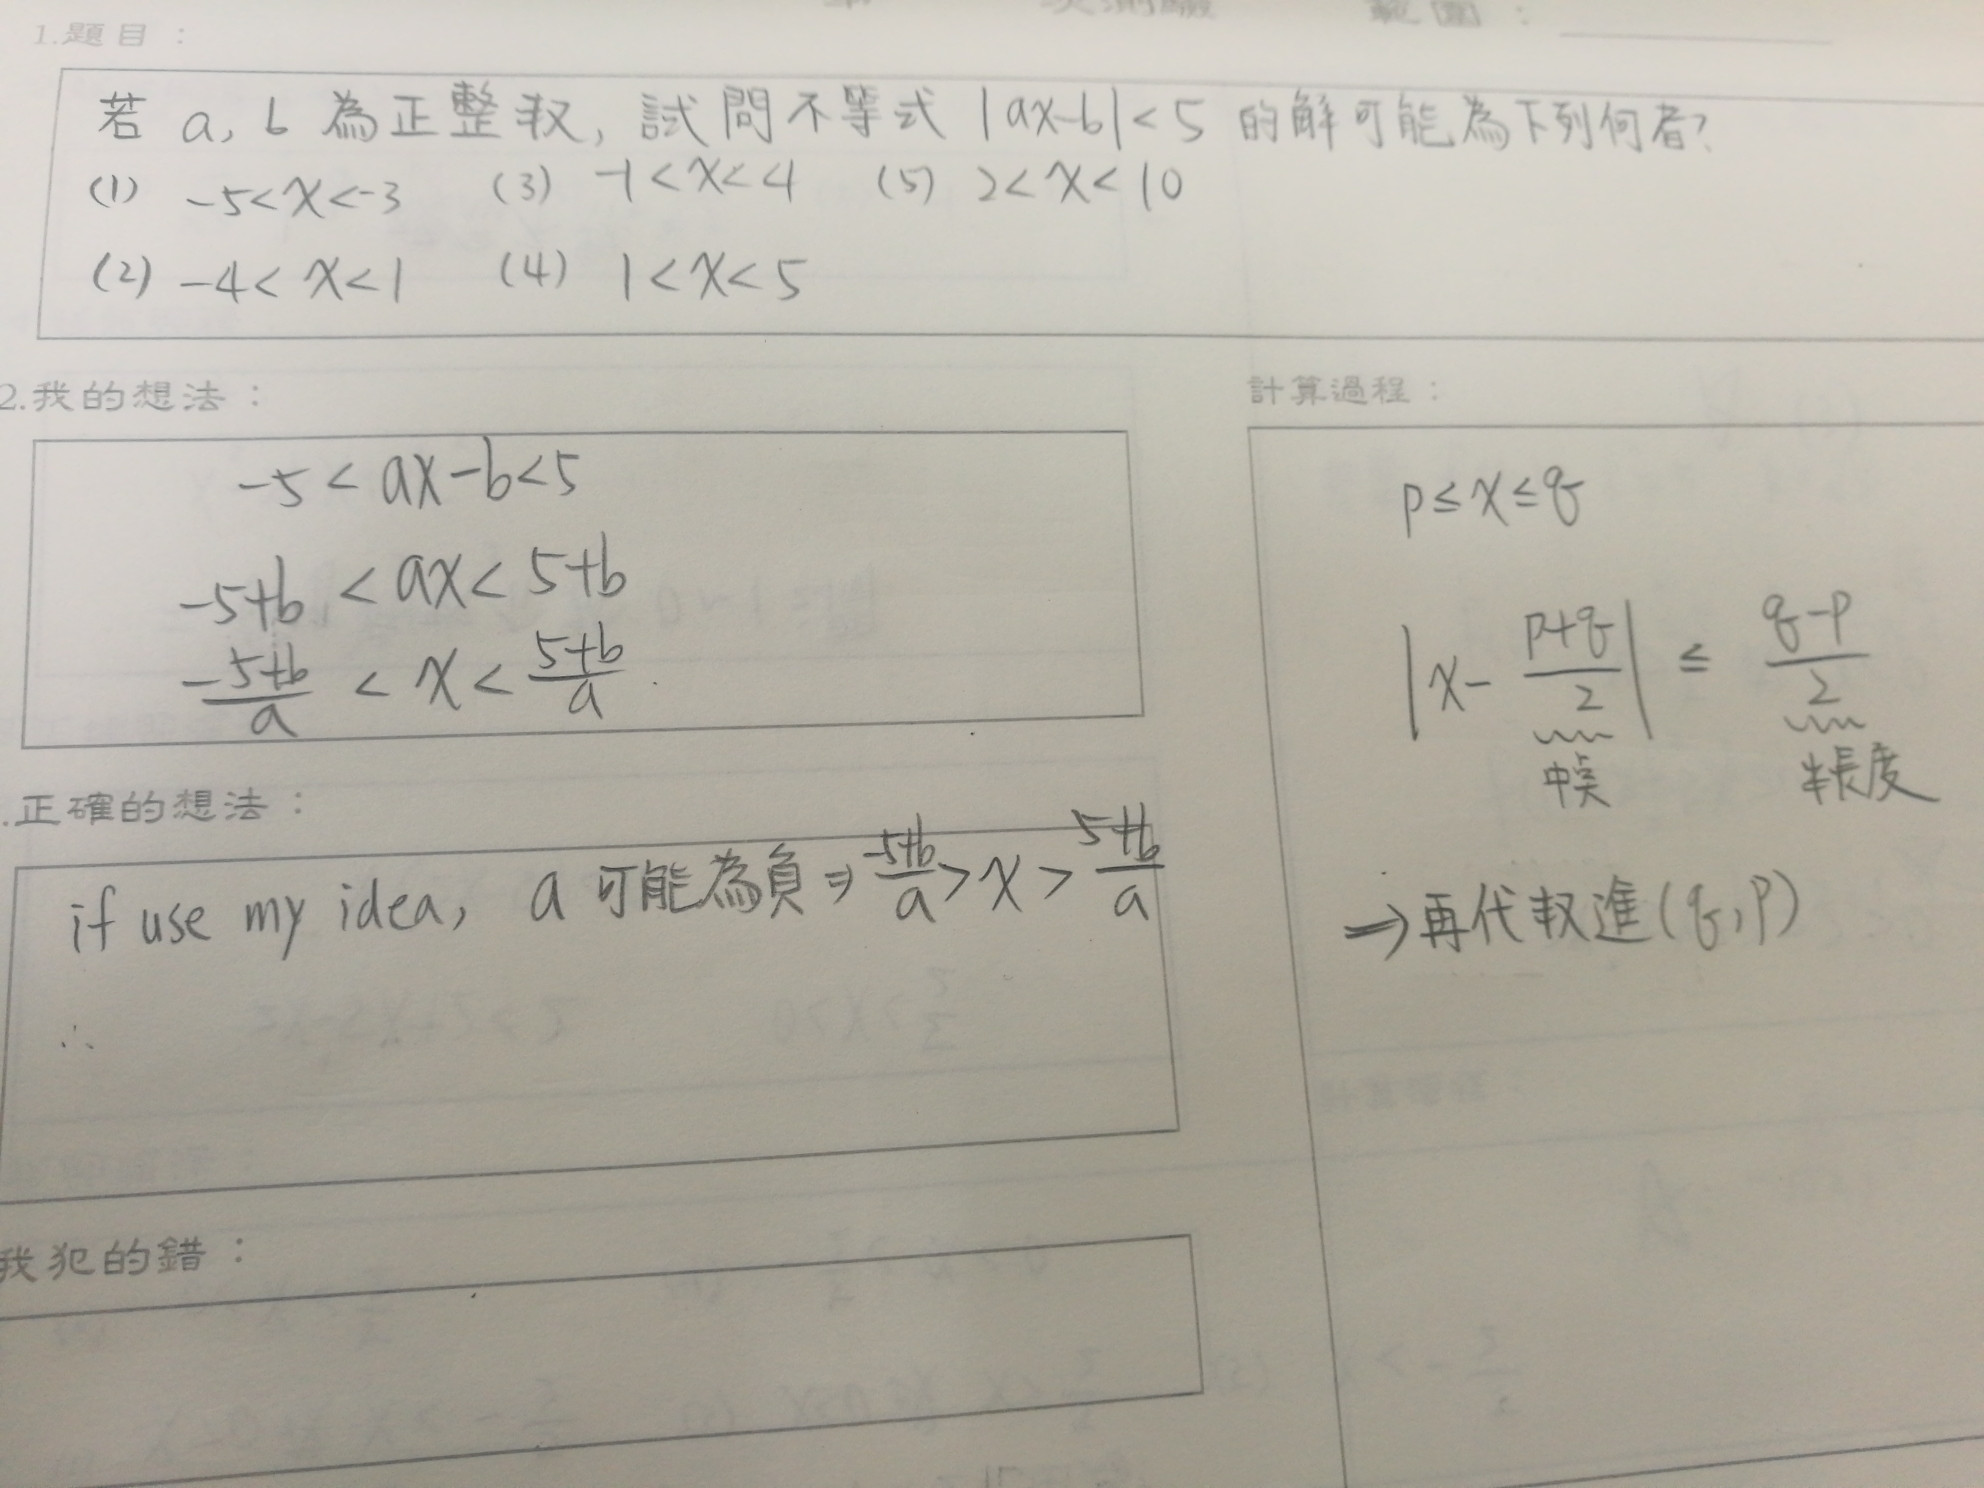 範圍：
1.題目：
若 a, b 為正整数, 試問不等式 |ax-b| < 5 的解可能為下列何者?
(1) -5<x<-3 (3) -1<x<4 (5) 2<x<10
(2) -4<x<1 (4) 1<x<5
2.我的想法：
-5 < ax-b < 5
-5+b < ax < 5+b
-5+b/a < x < 5+b/a
計算過程：
p≤x≤q
|x- p+q/2| ≤ q-p/2
中点 半長度
⇒再代数進(q,p)
.正確的想法：
if use my idea, a 可能為負 ⇒ -5+b/a > x > 5+b/a
∴
我犯的錯：